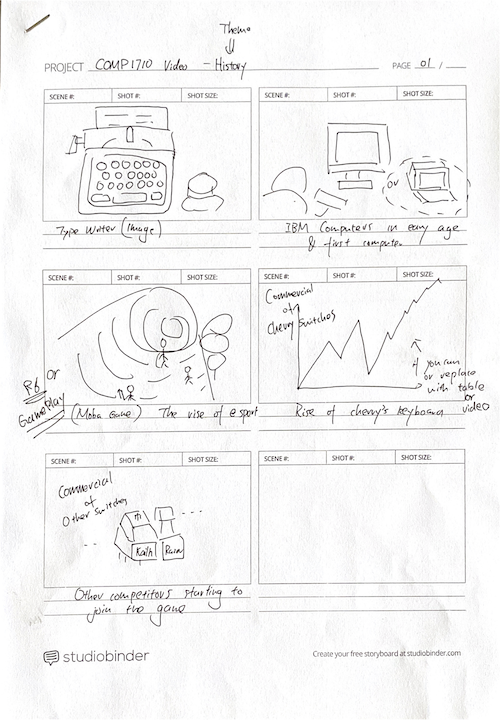 Theme
PROJECT COMP1710 Video - History
PAGE 01 /
SCENE #: SHOT #: SHOT SIZE:
SCENE #: SHOT #: SHOT SIZE:
or
Type Writer (Image)
IBM Computers in eary age
& first computer
SCENE #: SHOT #: SHOT SIZE:
R6 or
GamePlay
(Moba Game) The rise of esport
SCENE #: SHOT #: SHOT SIZE:
Commercial
of
Cherry Switches
if you can
or replace
with table
or
video
Rise of cherry's keyboard
SCENE #: SHOT #: SHOT SIZE:
Commercial
of
Other Switches
Kailh
Other competitors starting to
join the game
SCENE #: SHOT #: SHOT SIZE:
studiobinder
Create your free storyboard at studiobinder.com